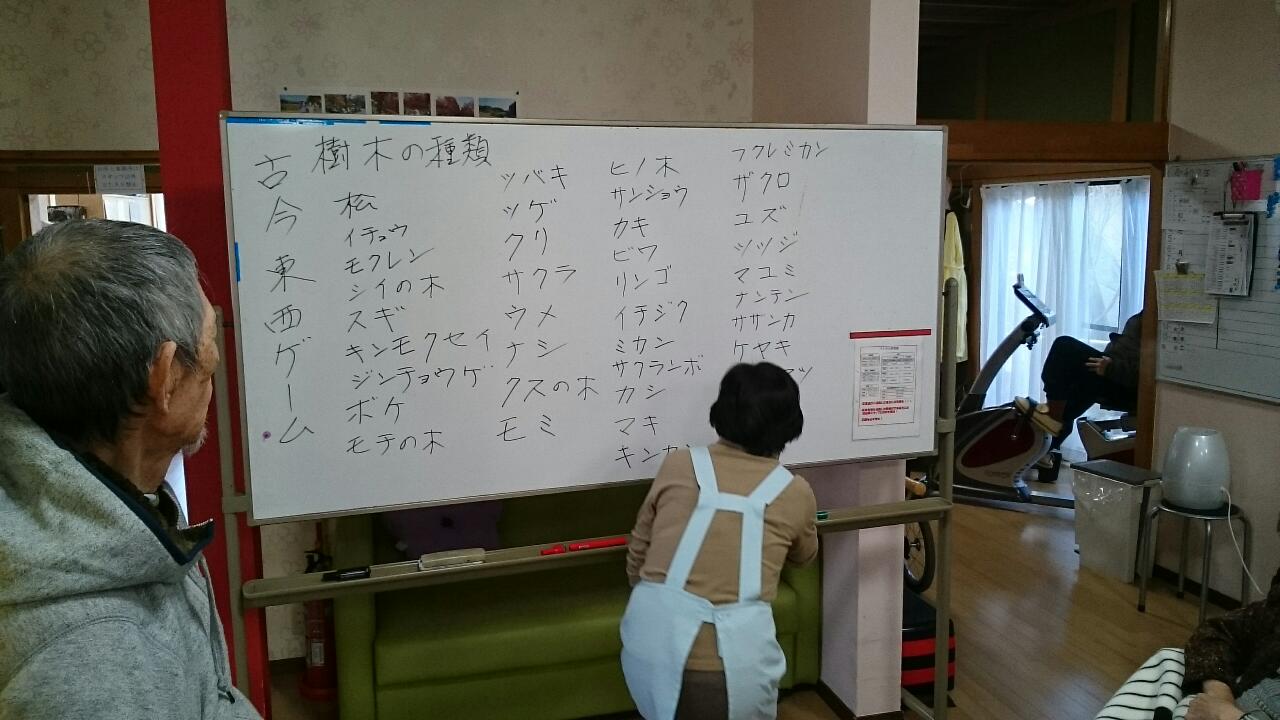 古今東西ゲーム
樹木の種類
松
イチョウ
モクレン
シイの木
スギ
キンモクセイ
ジンチョウゲ
ボケ
モテの木
ツバキ
ツゲ
クリ
サクラ
ウメ
ナシ
クスの木
モミ
ヒノ木
サンショウ
カキ
ビワ
リンゴ
イチジク
ミカン
サクランボ
カシ
マキ
キンカ
フクレミカン
ザクロ
ユズ
ツツジ
マユミ
ナンテン
ササンカ
ケヤキ
ツ